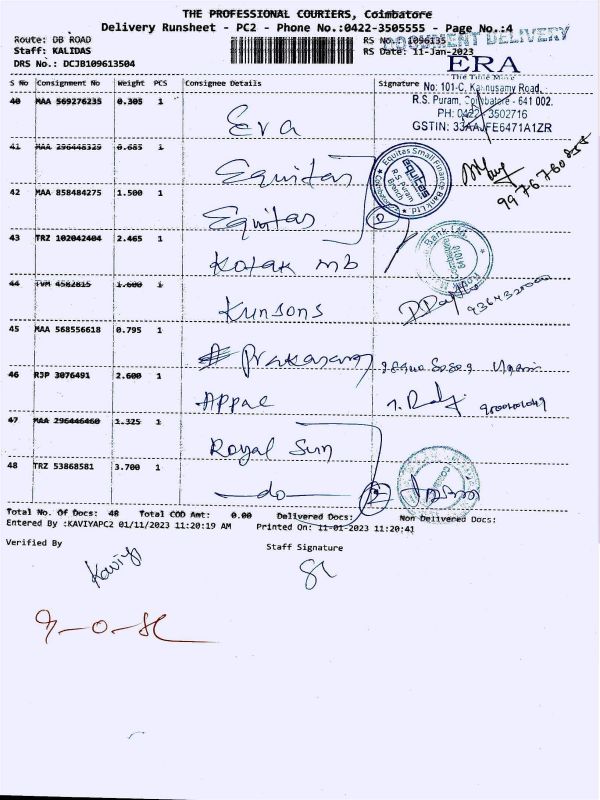 THE PROFESSIONAL COURIERS, Coimbatore
Delivery Runsheet - PC2 - Phone No.:0422-3505555 - Page No.:4
DOCUMENT DELIVERY
Route: DB ROAD
RS No.: 1096135
Staff: KALIDAS
RS Date: 11-Jan-2023
DRS No.: DCJB109613504
ERA
The Time Mine
S No Consignment No Weight PCS Consignee Details Signature
No: 101-C, Kannusamy Road,
R.S. Puram, Coimbatore - 641 002.
PH: 0422 - 3502716
GSTIN: 33AAJFE6471A1ZR
40 MAA 569276235 0.305 1 Era
41 MAA 296448329 0.685 1 Equitas
Equitas Small Finance Bank Ltd
equitas
R.S. Puram
Branch
Coimbatore
42 MAA 858484275 1.500 1 Equitas 2
43 TRZ 102042404 2.465 1 Kotak mb
Bank Ltd
44 TVM 4582815 1.600 1 Kunsons
45 MAA 568556618 0.795 1 Prakasam
46 RJP 3076491 2.600 1 Appac
47 MAA 296446460 1.325 1 Royal Sun
48 TRZ 53868581 3.700 1 -do- 2
Total No. Of Docs: 48 Total COD Amt: 0.00 Delivered Docs: Non Delivered Docs:
Entered By :KAVIYAPC2 01/11/2023 11:20:19 AM Printed On: 11-01-2023 11:20:41
Verified By
Staff Signature
Kaviya